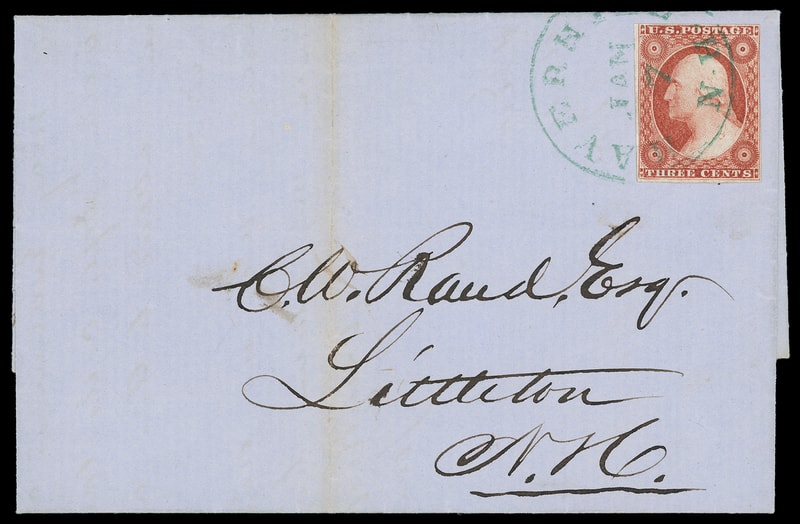 U.S. POSTAGE
THREE CENTS
JAN
C.W. Rand, Esq.
Littleton
N.H.